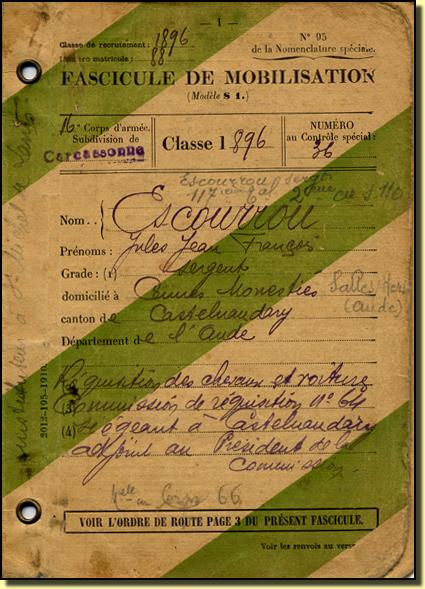 — 1 —
Classe de recrutement : 1896
Numéro matricule : 88
N° 95
de la Nomenclature spéciale.
FASCICULE DE MOBILISATION
(Modèle S 1.)
16e Corps d'armée.
Subdivision de
Carcassonne
Classe 1896
NUMÉRO
au Contrôle spécial :
36
Escourrou sergt
Nom . . Escourrou
Prénoms : Jules Jean François
Grade : (1) sergent
domicilié à
canton de Castelnaudary
Département de l'Aude
(Aude)
Réquisition des chevaux et voiture
(3) Commission de réquisition N° 64
(4) siégeant à Castelnaudary
adjoint au Président de la
commission
Corps 66
VOIR L'ORDRE DE ROUTE PAGE 3 DU PRÉSENT FASCICULE.
Voir les renvois au verso
2012-195-1910.